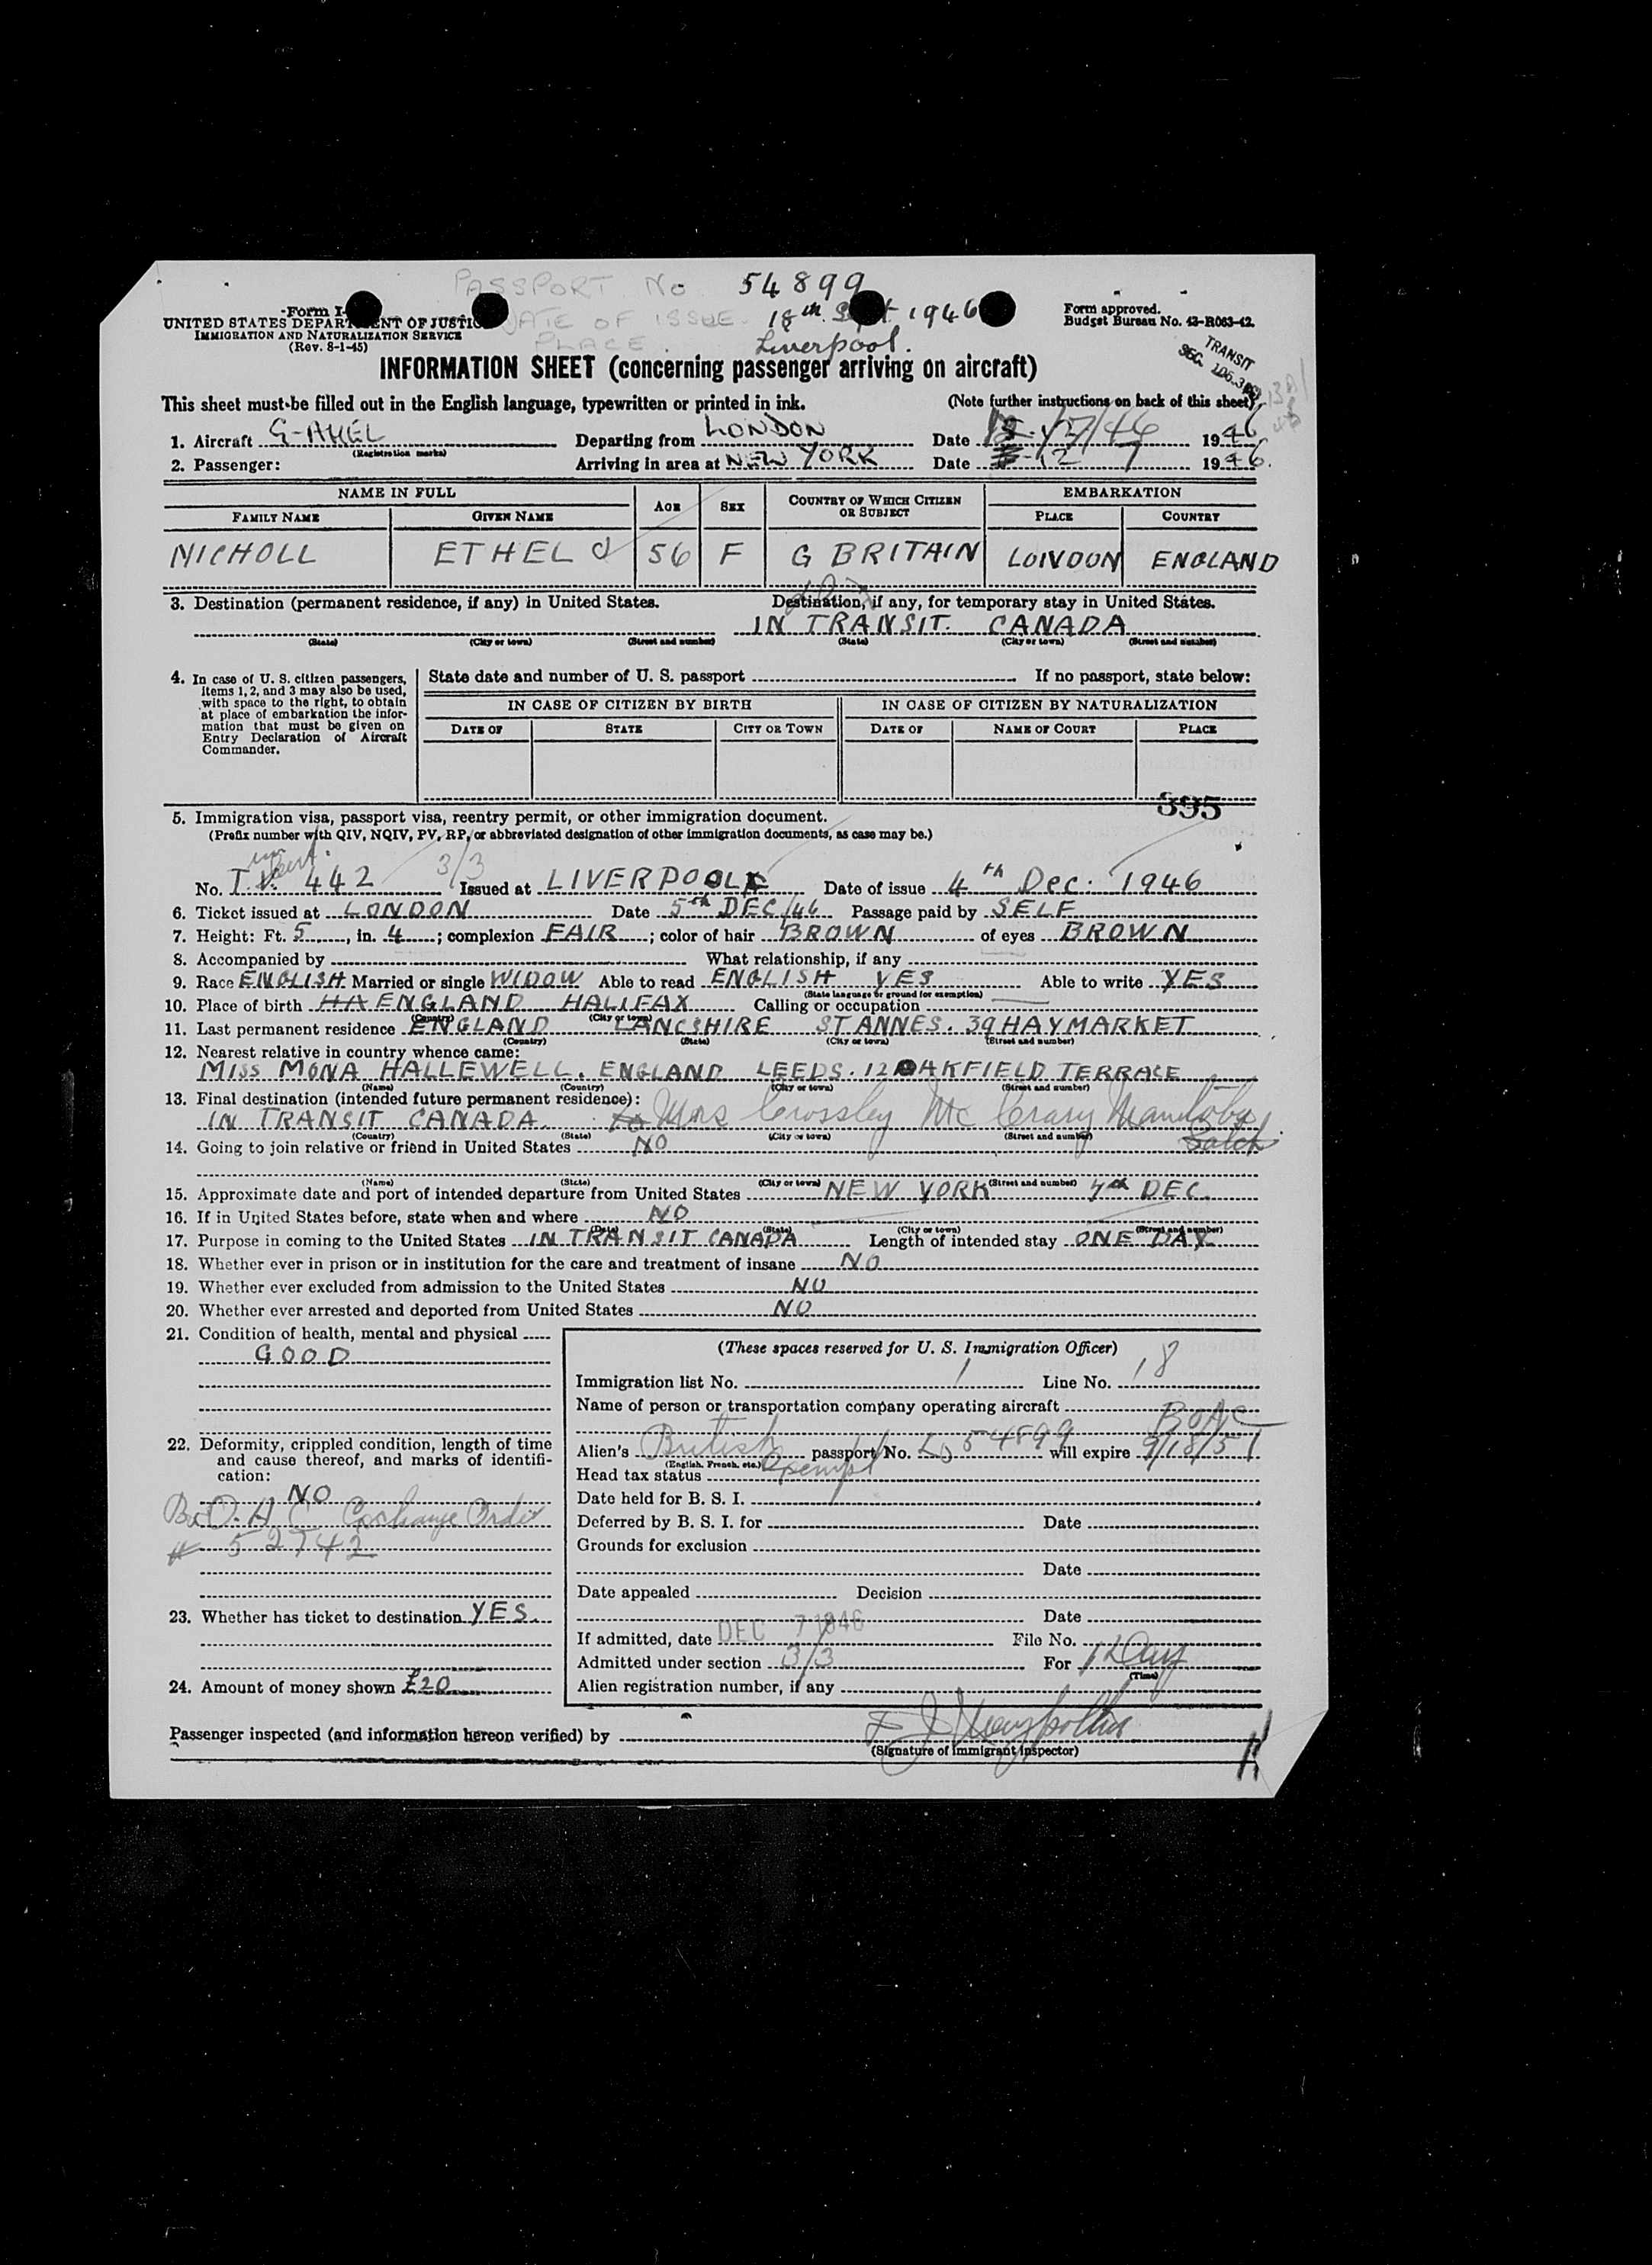 PASSPORT No 54899
DATE OF ISSUE. 18th Sept 1946
PLACE. Liverpool.
Form I-
UNITED STATES DEPARTMENT OF JUSTICE
IMMIGRATION AND NATURALIZATION SERVICE
(Rev. 8-1-45)
Form approved.
Budget Bureau No. 43-R063-42.
TRANSIT
SEC.
INFORMATION SHEET (concerning passenger arriving on aircraft)
This sheet must be filled out in the English language, typewritten or printed in ink. (Note further instructions on back of this sheet)
1. Aircraft G-AHEL Departing from LONDON Date 1946
(Registration marks)
2. Passenger: Arriving in area at NEW YORK Date 12 7 1946.
NAME IN FULL AGE SEX COUNTRY OF WHICH CITIZEN OR SUBJECT EMBARKATION
FAMILY NAME GIVEN NAME PLACE COUNTRY
NICHOLL ETHEL 56 F G BRITAIN LONDON ENGLAND
3. Destination (permanent residence, if any) in United States. Destination, if any, for temporary stay in United States.
IN TRANSIT. CANADA
(State) (City or town) (Street and number) (State) (City or town) (Street and number)
4. In case of U. S. citizen passengers, items 1, 2, and 3 may also be used, with space to the right, to obtain at place of embarkation the information that must be given on Entry Declaration of Aircraft Commander.
State date and number of U. S. passport If no passport, state below:
IN CASE OF CITIZEN BY BIRTH IN CASE OF CITIZEN BY NATURALIZATION
DATE OF STATE CITY OR TOWN DATE OF NAME OF COURT PLACE
395
5. Immigration visa, passport visa, reentry permit, or other immigration document.
(Prefix number with QIV, NQIV, PV, RP, or abbreviated designation of other immigration documents, as case may be.)
3/3
No. T.V. 442 Issued at LIVERPOOL Date of issue 4th Dec. 1946
6. Ticket issued at LONDON Date 5th DEC/46 Passage paid by SELF
7. Height: Ft. 5, in. 4; complexion FAIR; color of hair BROWN of eyes BROWN
8. Accompanied by What relationship, if any
9. Race ENGLISH Married or single WIDOW Able to read ENGLISH YES Able to write YES
(State language or ground for exemption)
10. Place of birth HA ENGLAND HALIFAX Calling or occupation
(Country) (City or town)
11. Last permanent residence ENGLAND LANCSHIRE ST ANNES. 39 HAYMARKET
(Country) (State) (City or town) (Street and number)
12. Nearest relative in country whence came:
MISS MONA HALLEWELL. ENGLAND LEEDS. 12 OAKFIELD TERRACE
(Name) (Country) (City or town) (Street and number)
13. Final destination (intended future permanent residence):
IN TRANSIT CANADA. to Mrs Crossley Mc Crary Manitoba
(Country) (State) (City or town) (Street and number)
14. Going to join relative or friend in United States NO
(Name) (State) (City or town) (Street and number)
15. Approximate date and port of intended departure from United States NEW YORK 7th DEC.
16. If in United States before, state when and where NO
(Date) (State) (City or town) (Street and number)
17. Purpose in coming to the United States IN TRANSIT CANADA Length of intended stay ONE DAY
18. Whether ever in prison or in institution for the care and treatment of insane NO
19. Whether ever excluded from admission to the United States NO
20. Whether ever arrested and deported from United States NO
21. Condition of health, mental and physical
GOOD
22. Deformity, crippled condition, length of time and cause thereof, and marks of identification:
NO
B.O.A.C Exchange Order
# 52742
23. Whether has ticket to destination YES.
24. Amount of money shown £20
(These spaces reserved for U. S. Immigration Officer)
Immigration list No. 1 Line No. 18
Name of person or transportation company operating aircraft BOAC
Alien's British passport No. 54899 will expire 9/18/51
(English, French, etc.)
Head tax status Exempt
Date held for B. S. I.
Deferred by B. S. I. for Date
Grounds for exclusion
Date
Date appealed Decision
Date
If admitted, date DEC 7 1946 File No.
Admitted under section 3/3 For 1 Day
(Time)
Alien registration number, if any
Passenger inspected (and information hereon verified) by
(Signature of Immigrant Inspector)